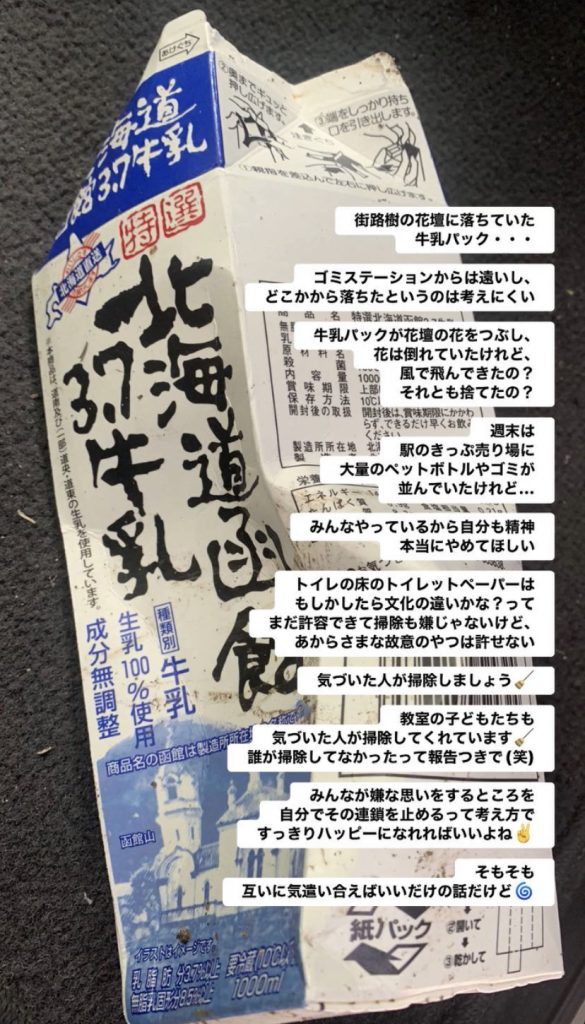 あけぐち
②奥までギュッと
押し広げます。
③端をしっかり持ち
口を引き出します。
海道
3.7牛乳
特選
北海道直送
北海道函館
3.7牛乳
種類別 牛乳
生乳100%使用
成分無調整
商品名の函館は製造所所在
函館山
イラストはイメージです。
乳脂肪分3.7%以上
無脂乳固形分8.5%以上
要冷蔵10℃以下
1000ml
街路樹の花壇に落ちていた
牛乳パック・・・
ゴミステーションからは遠いし、
どこかから落ちたというのは考えにくい
牛乳パックが花壇の花をつぶし、
花は倒れていたけれど、
風で飛んできたの?
それとも捨てたの?
週末は
駅のきっぷ売り場に
大量のペットボトルやゴミが
並んでいたけれど...
みんなやっているから自分も精神
本当にやめてほしい
トイレの床のトイレットペーパーは
もしかしたら文化の違いかな?って
まだ許容できて掃除も嫌じゃないけど、
あからさまな故意のやつは許せない
気づいた人が掃除しましょう🧹
教室の子どもたちも
気づいた人が掃除してくれています🧹
誰が掃除してなかったって報告つきで(笑)
みんなが嫌な思いをするところを
自分でその連鎖を止めるって考え方で
すっきりハッピーになれればいいよね✌️
そもそも
互いに気遣い合えばいいだけの話だけど🌀
紙パック
②開いて
③乾かして